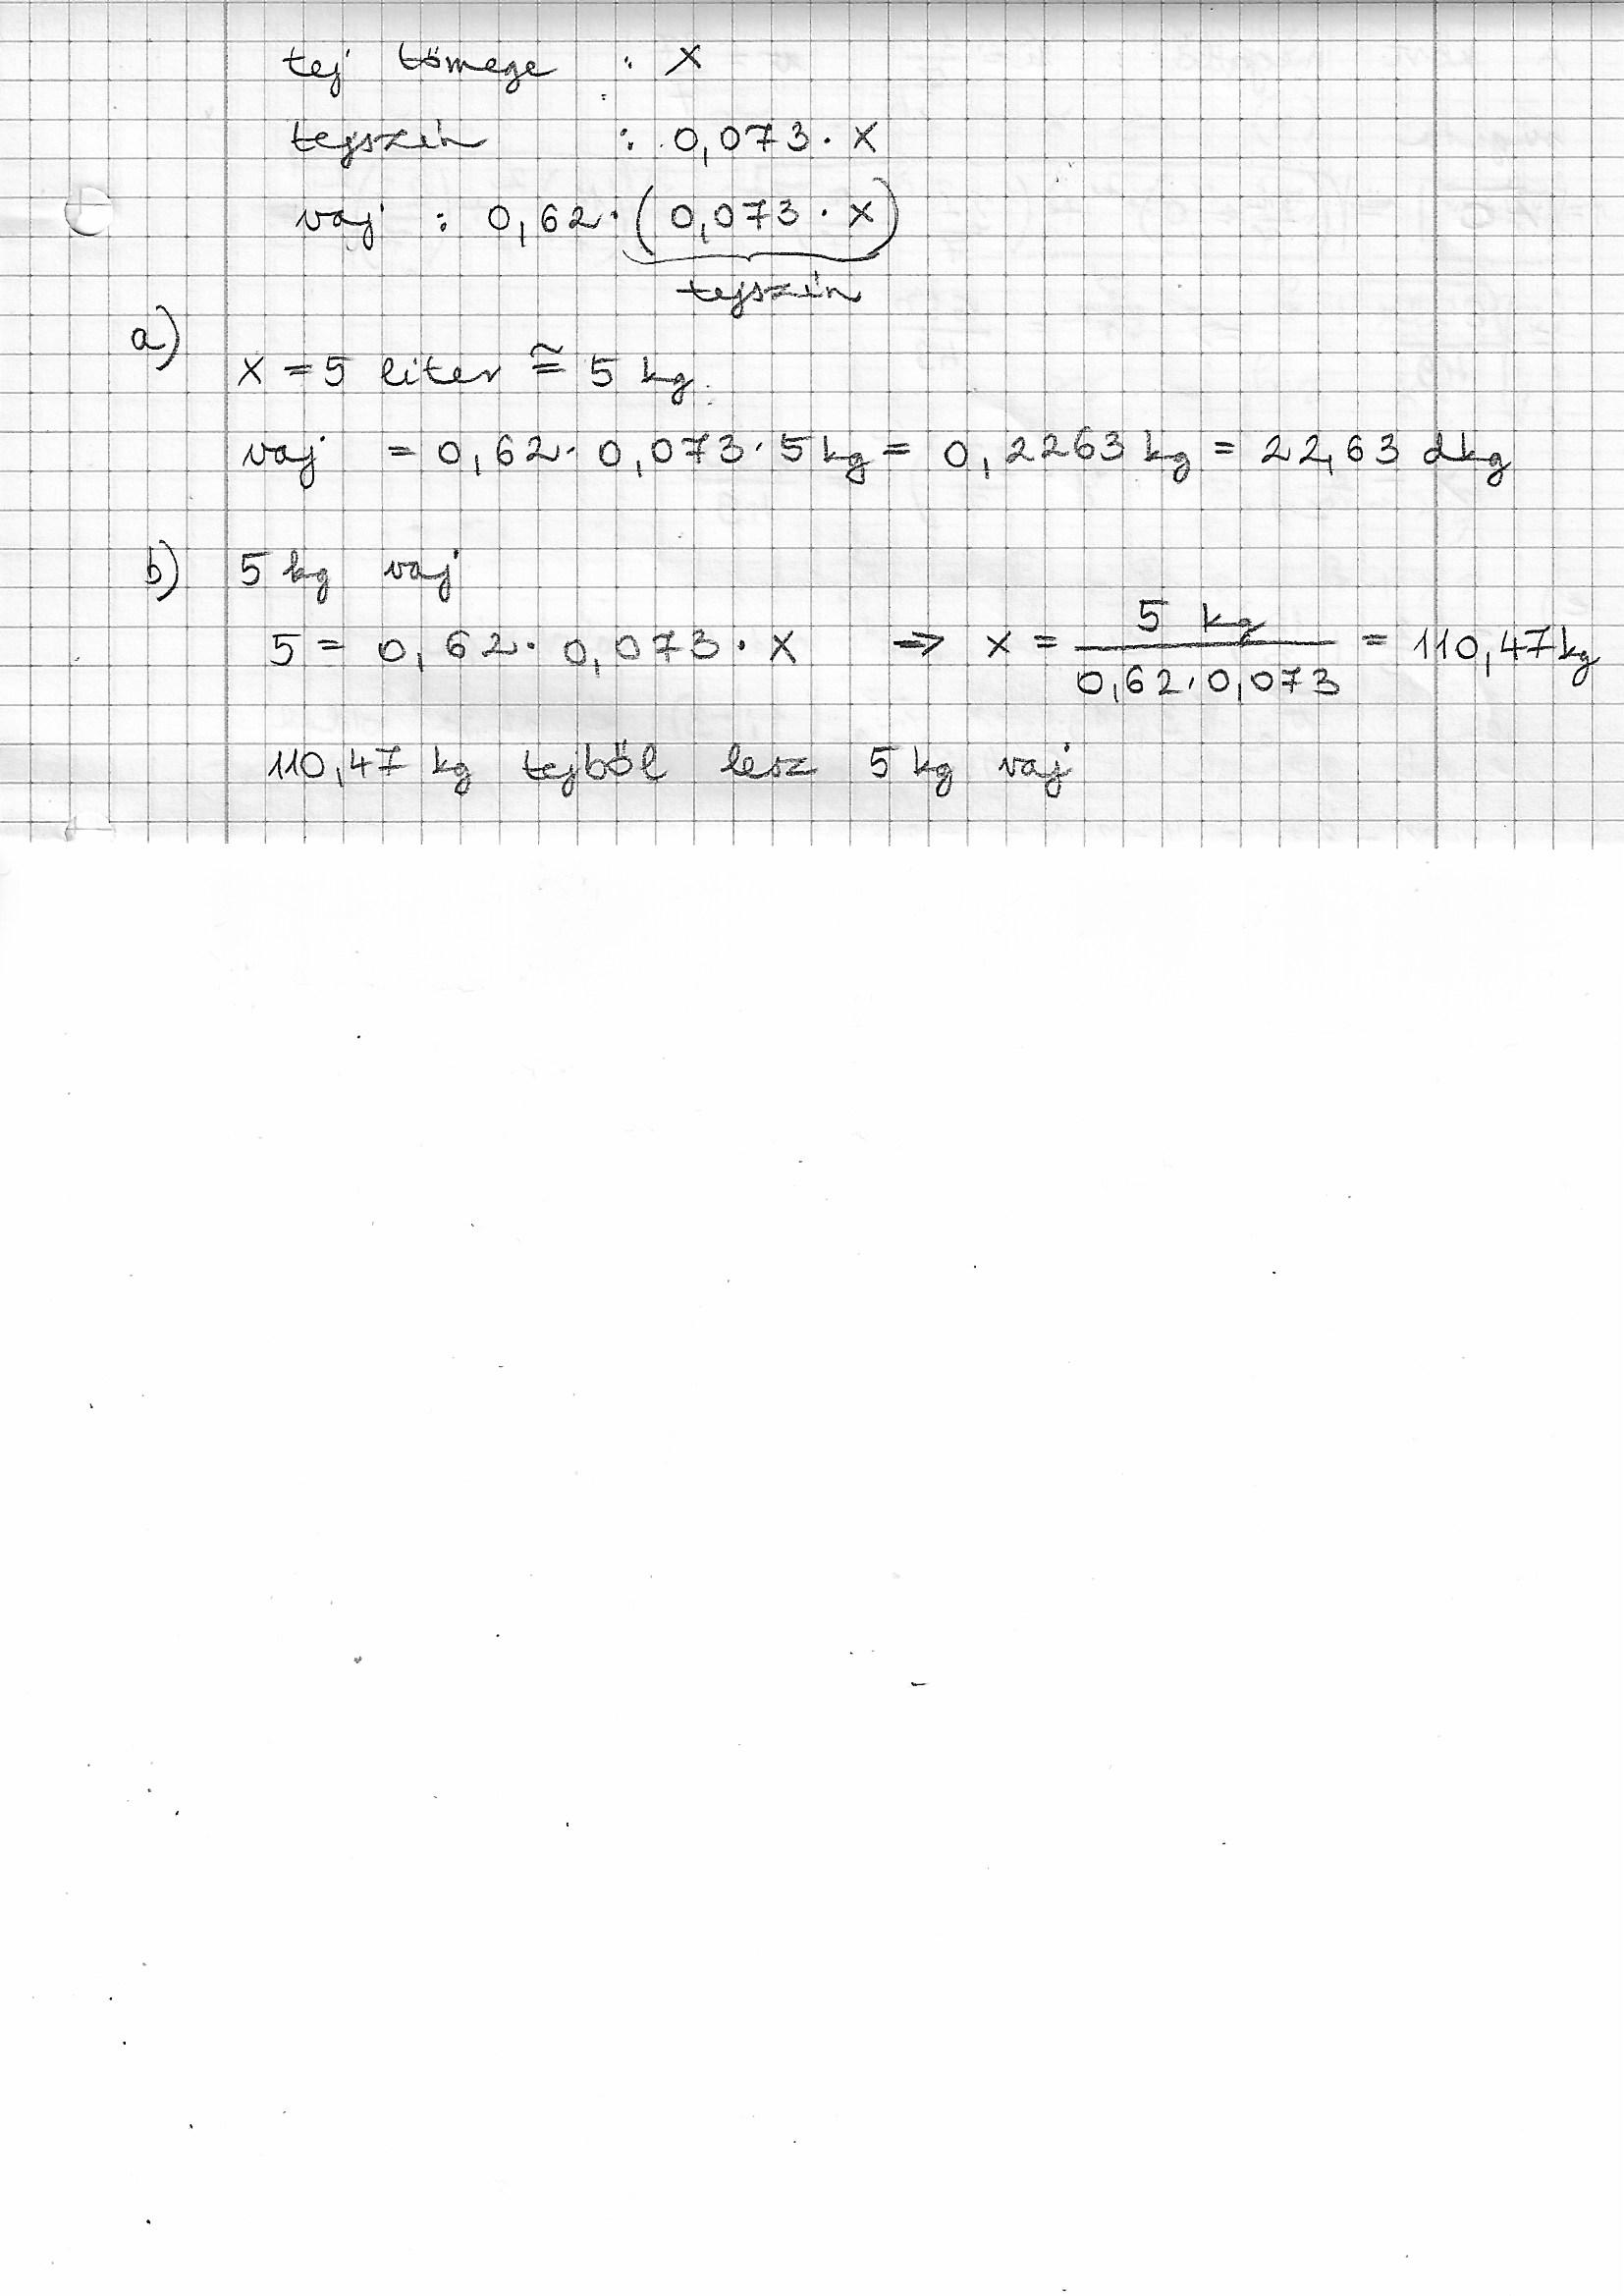 tej tömege : x
tejszín : 0,073 · x
vaj : 0,62 · (0,073 · x)
tejszín
a)
x = 5 liter ≅ 5 kg
vaj = 0,62 · 0,073 · 5 kg = 0,2263 kg = 22,63 dkg
b) 5 kg vaj
5 = 0,62 · 0,073 · x ⇒ x = 5 kg / 0,62 · 0,073 = 110,47 kg
110,47 kg tejből lesz 5 kg vaj